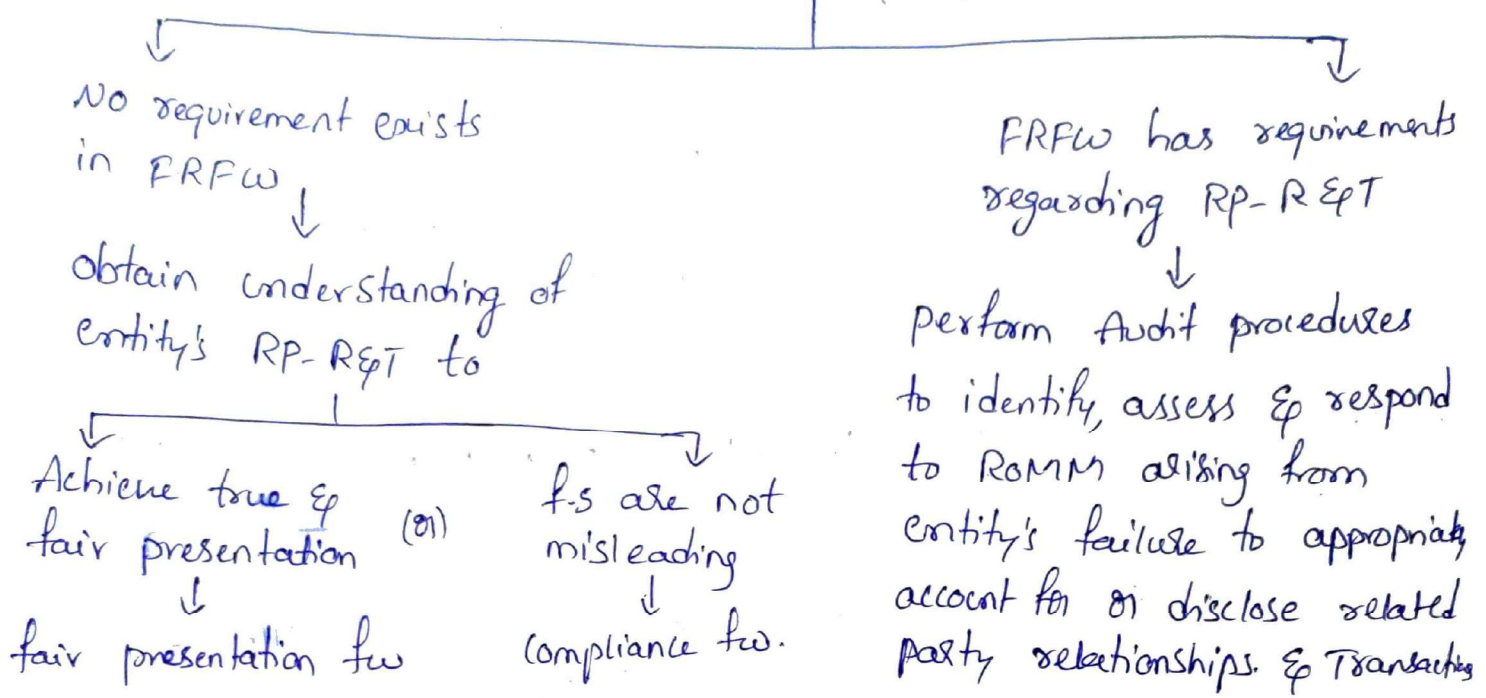 No requirement exists
in FRFW
obtain understanding of
entity's RP-R&T to
Achieve true &
fair presentation
(or)
f.s are not
misleading
fair presentation fw
compliance fw.
FRFW has requirements
regarding RP-R&T
perform Audit procedures
to identify, assess & respond
to ROMM arising from
entity's failure to appropriately
account for or disclose related
party relationships. & Transactions